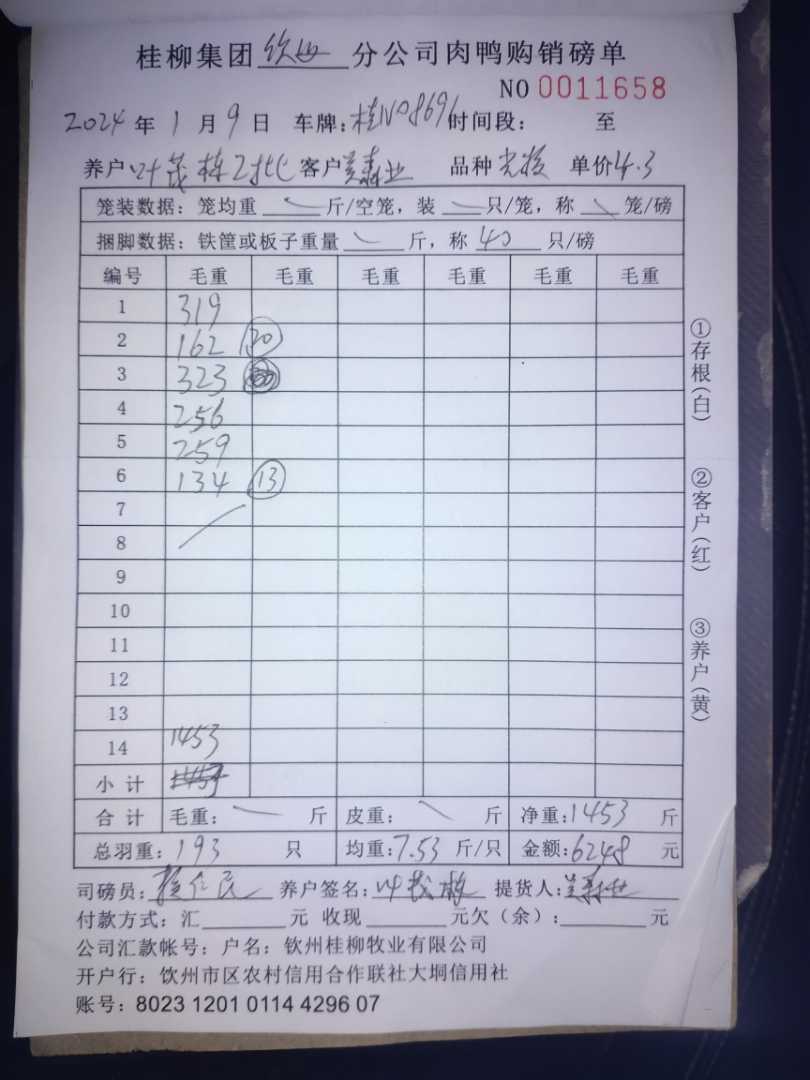 桂柳集团钦州分公司肉鸭购销磅单
NO 0011658
2024年1月9日 车牌:桂N08696 时间段: 至
养户:叶茂栋 客户 品种 单价4.3
笼装数据: 笼均重 斤/空笼, 装 只/笼, 称 笼/磅
捆脚数据: 铁筐或板子重量 斤, 称 40 只/磅
编号 毛重 毛重 毛重 毛重 毛重 毛重
1 319
2 162
3 323
4 256
5 259
6 134 13
7
8
9
10
11
12
13
14 1453
小计
合计 毛重: 斤 皮重: 斤 净重:1453斤
总羽重:193只 均重:7.53斤/只 金额:6248元
司磅员: 养户签名:叶茂栋 提货人:
付款方式:汇 元 收现 元欠(余): 元
公司汇款帐号: 户名: 钦州桂柳牧业有限公司
开户行: 饮州市区农村信用合作联社大垌信用社
账号: 8023 1201 0114 4296 07
①存根(白)
②客户(红)
③养户(黄)